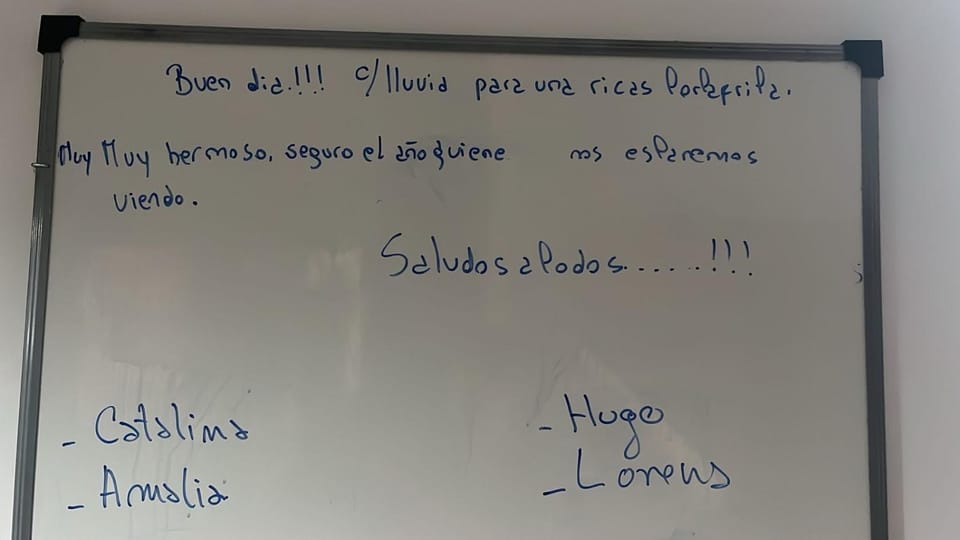 Buen dia.!!! c/ lluvia para una ricas tortafrita.
Muy Muy hermoso, seguro el año quiene nos estaremos
viendo.
Saludos a todos......!!!
- Catalina
- Amalia
- Hugo
- Lorens